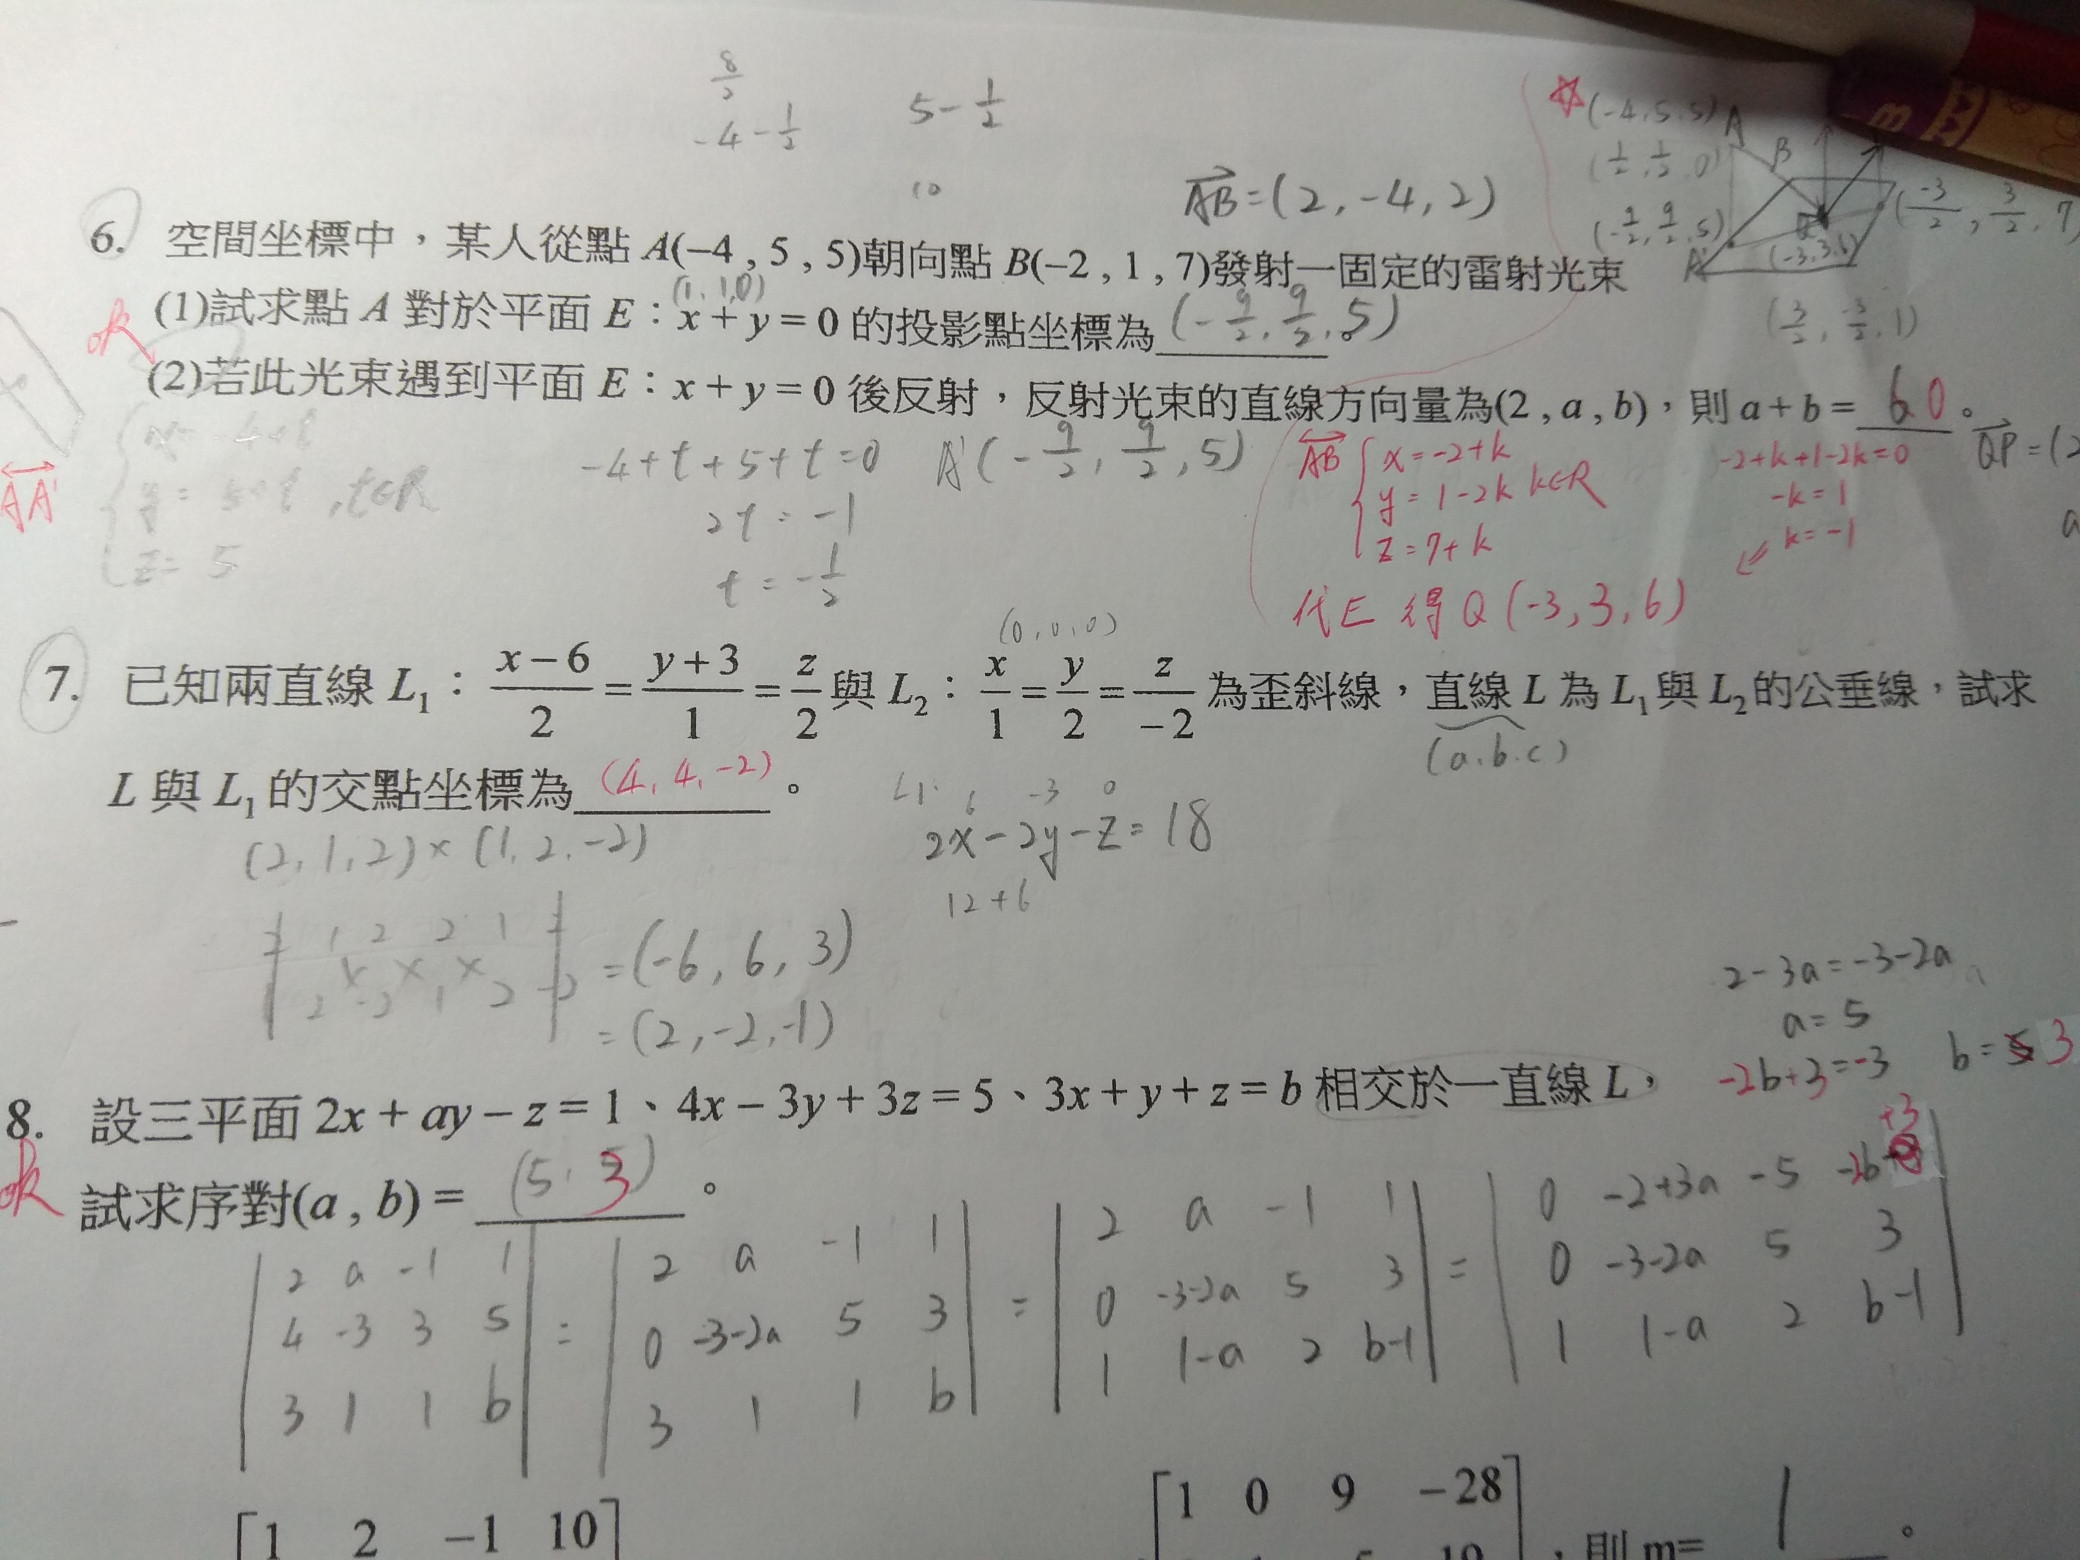 8/2
-4-1/2
5-1/2
10
AB=(2,-4,2)
☆(-4,5,5) A
(1/2,1/2,0) B
(-9/2,9/2,5) Q (-3/2,3/2,7)
A' (-3,3,6)
(3/2,-3/2,1)
6. 空間坐標中，某人從點 A(−4 , 5 , 5)朝向點 B(−2 , 1 , 7)發射一固定的雷射光束
(1,1,0)
ok
(1)試求點 A 對於平面 E：x + y = 0 的投影點坐標為 (-9/2, 9/2, 5) 。
(2)若此光束遇到平面 E：x + y = 0 後反射，反射光束的直線方向量為(2 , a , b)，則 a + b = 60 。
AA' { x=-4+t
y=5+t ,t∈R
z=5
-4+t+5+t=0
2t=-1
t=-1/2
A'(-9/2, 9/2, 5)
AB { x=-2+k
y=1-2k k∈R
z=7+k
-2+k+1-2k=0
-k=1
k=-1
QP=(2
a
代E 得 Q(-3,3,6)
(0,0,0)
7. 已知兩直線 L₁：(x−6)/2 = (y+3)/1 = z/2 與 L₂：x/1 = y/2 = z/−2 為歪斜線，直線 L 為 L₁與 L₂的公垂線，試求
(a.b.c)
L 與 L₁ 的交點坐標為 (4,4,-2) 。
(2,1,2)×(1,2,-2)
L1: 6 -3 0
2x-2y-z=18
12+6
2 1 2 2 1 2
1 2 -2 1 2 -2
=(-6,6,3)
=(2,-2,-1)
2-3a=-3-2a
a=5
-2b+3=-3 b=3
8. 設三平面 2x + ay − z = 1、4x − 3y + 3z = 5、3x + y + z = b 相交於一直線 L，
ok
試求序對(a , b) = (5,3) 。
| 2 a -1 1 | = | 2 a -1 1 | = | 2 a -1 1 | = | 0 -2+3a -5 -2b+3 |
| 4 -3 3 5 | | 0 -3-2a 5 3 | | 0 -3-2a 5 3 | | 0 -3-2a 5 3 |
| 3 1 1 b | | 3 1 1 b | | 1 1-a 2 b-1 | | 1 1-a 2 b-1 |
1 2 −1 10
1 0 9 −28
，則 m= 1 。